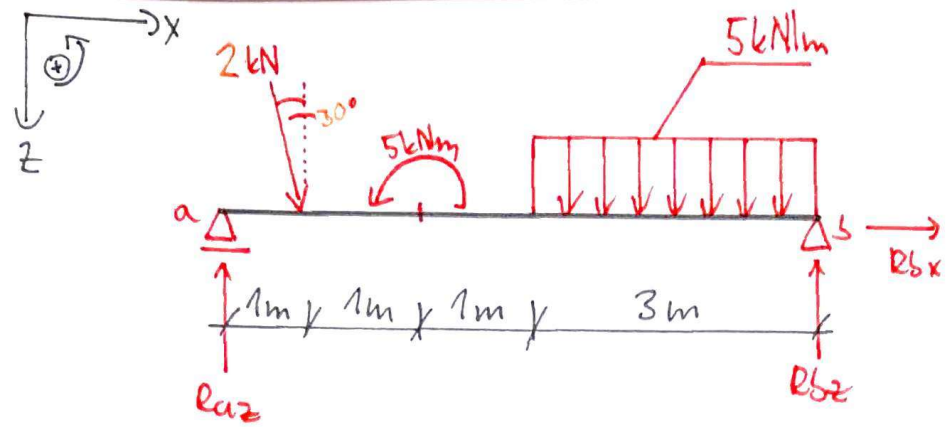 x
+
z
2 kN
30°
5kNm
5kN/m
a
b
Rbx
1m
1m
1m
3m
Raz
Rbz